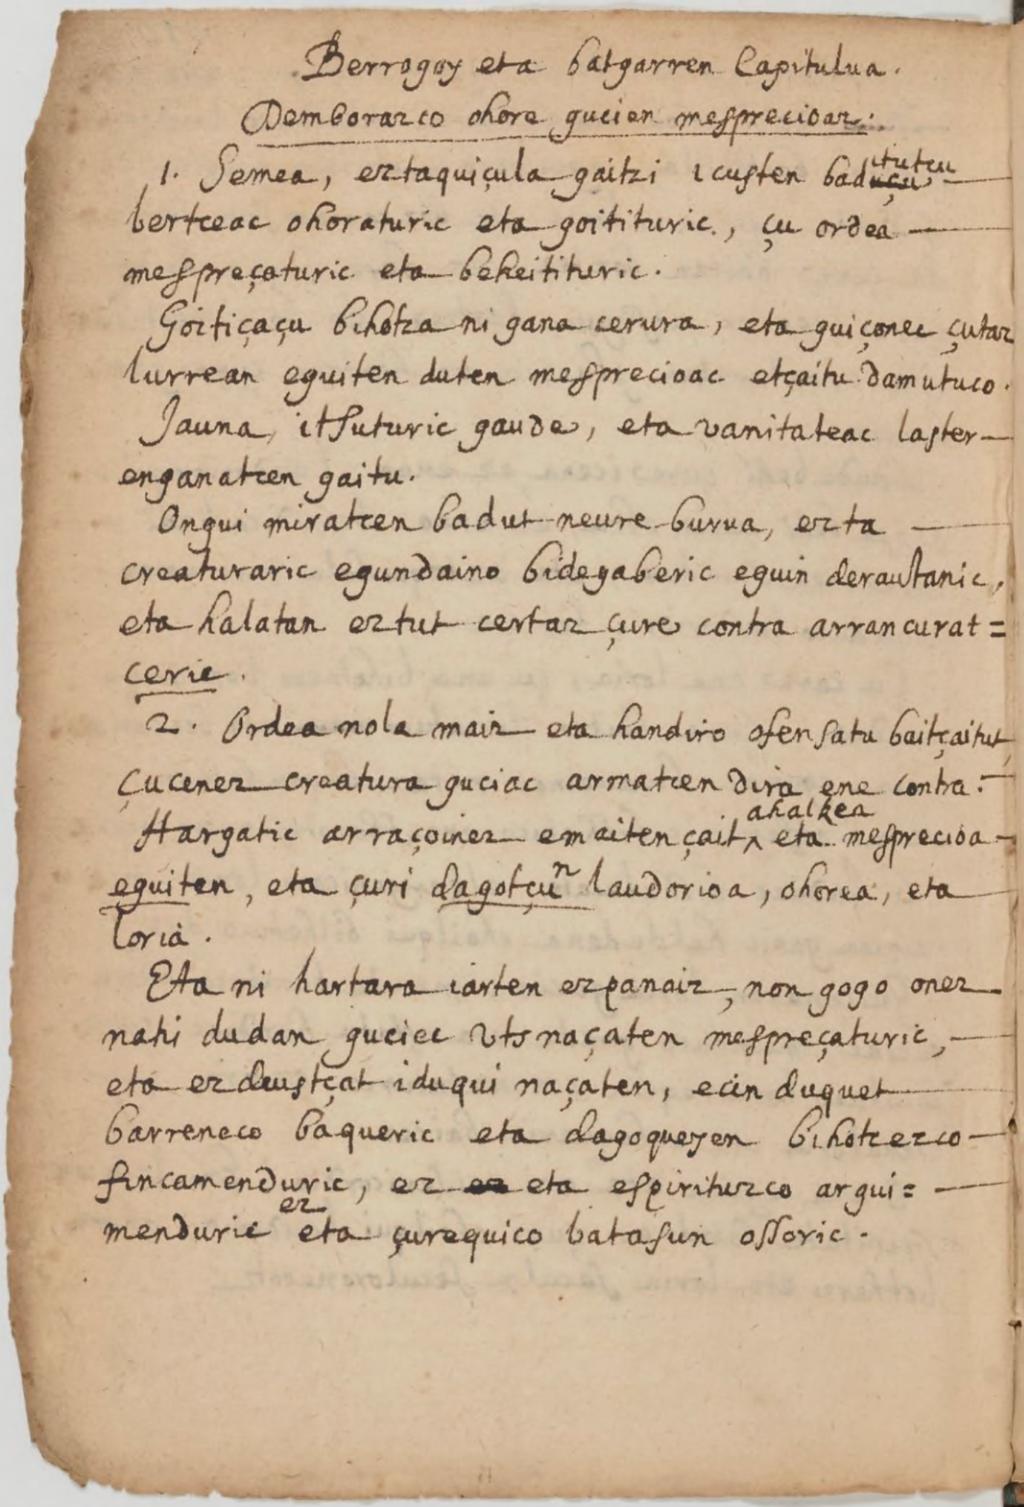 Berrogoy eta batgarren Capitulua.
Demborazco ohore gucien mesprecioaz.
1. Semea, eztaquiçula gaitzi icusten baditutçu
bertceac ohoraturic eta goitituric, çu ordea
mespreçaturic eta beheitituric.
Goitiçaçu bihotza ni gana cerura, eta guiçonec çutaz
lurrean eguiten duten mesprecioac etçaitu damutuco.
Jauna, itsuturic gaude, eta vanitateac laster
enganatcen gaitu.
Ongui miratcen badut neure burua, ezta
creaturaric egundaino bidegaberic eguin deraustanic,
eta halatan eztut certaz çure contra arrancurat=
ceric.
2. Ordea nola maiz eta handiro ofensatu baitçaitut,
Çucenez creatura guciac armatcen dira ene contra.
Hargatic arraçoinez emaiten çait ahalkea eta mesprecioa
eguiten, eta çuri dagotçun laudorioa, ohorea, eta
loria.
Eta ni hartara iarten ezpanaiz, non gogo onez
nahi dudan guciec utsnaçaten mespreçaturic,
eta ezdeustçat iduqui naçaten, ecin duquet
barreneco baqueric eta dagoqueyen bihotzezco
fincamenduric, ez ez eta espirituzco argui=
menduric ez eta çurequico batasun ossoric.